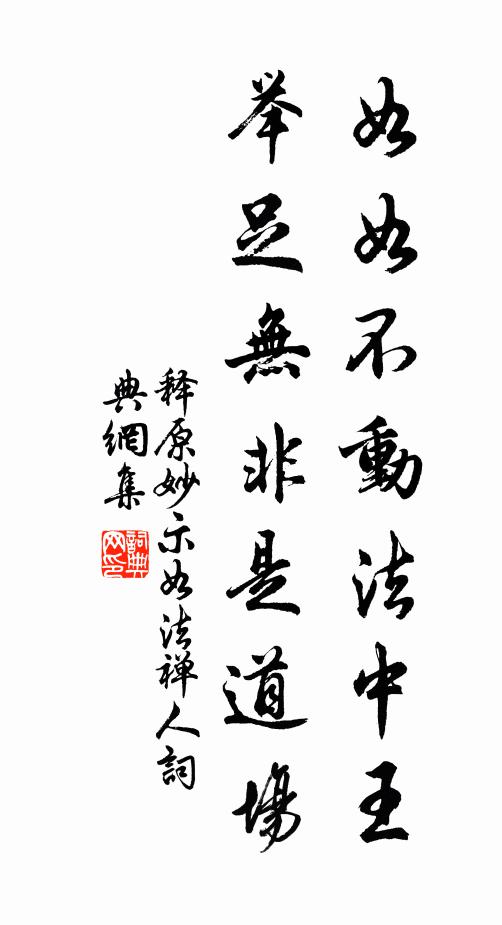 如如不動法中王
举足無非是道場
释原妙示如法禅人詞
典網集
詞典网印